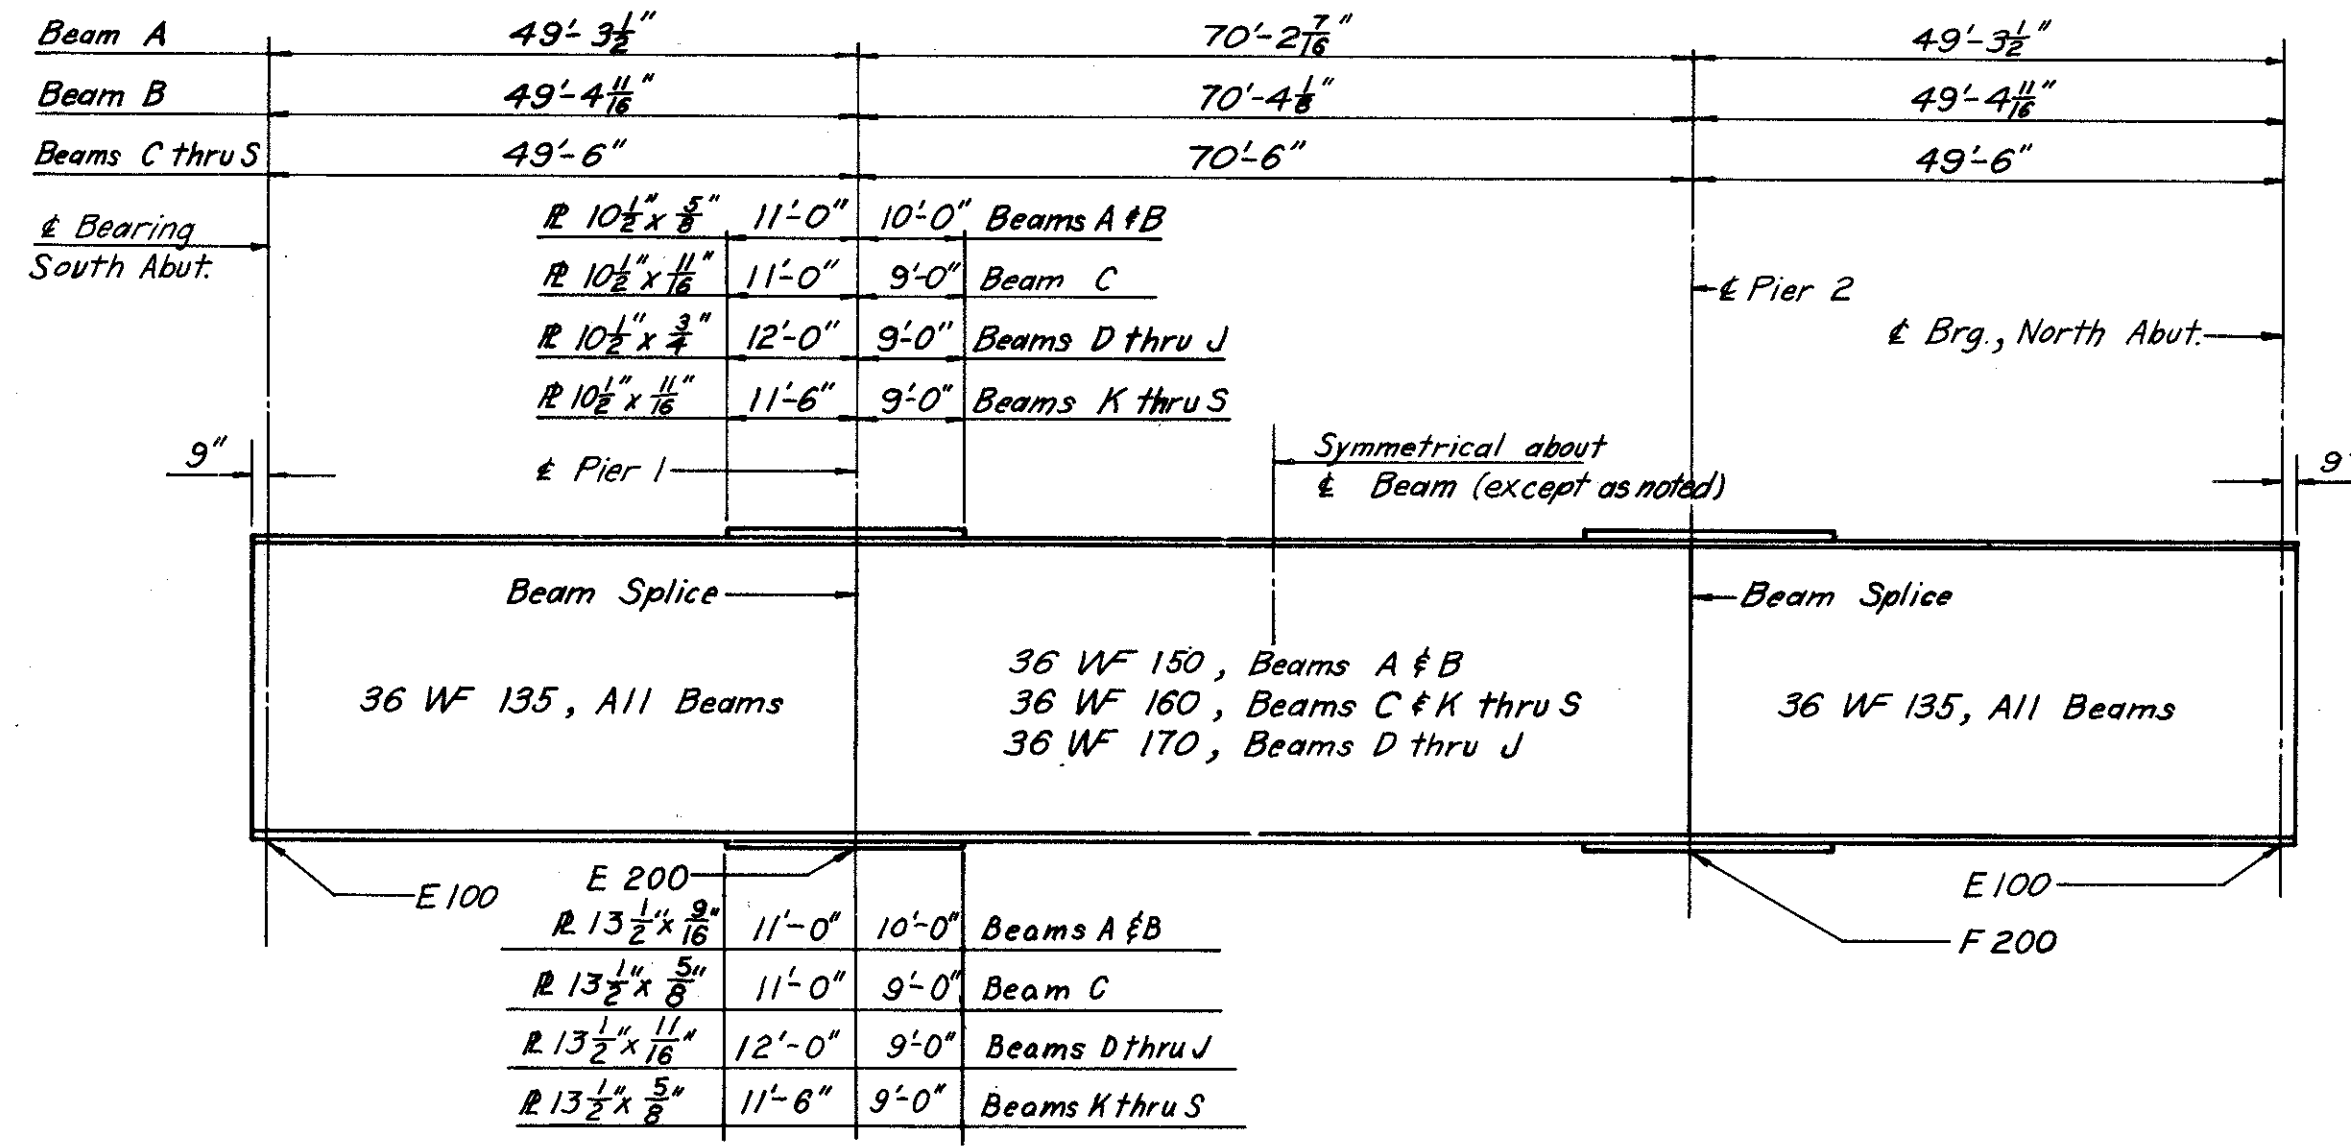 Beam A 49'-3 1/2" 70'-2 7/16" 49'-3 1/2"
Beam B 49'-4 11/16" 70'-4 1/8" 49'-4 11/16"
Beams C thru S 49'-6" 70'-6" 49'-6"
℄ Bearing
South Abut.
℄ Pier 2
℄ Brg., North Abut.
PL 10 1/2" x 5/8" 11'-0" 10'-0" Beams A & B
PL 10 1/2" x 11/16" 11'-0" 9'-0" Beam C
PL 10 1/2" x 3/4" 12'-0" 9'-0" Beams D thru J
PL 10 1/2" x 11/16" 11'-6" 9'-0" Beams K thru S
9"
℄ Pier 1
Symmetrical about
℄ Beam (except as noted)
9"
Beam Splice
Beam Splice
36 WF 135, All Beams
36 WF 150, Beams A & B
36 WF 160, Beams C & K thru S
36 WF 170, Beams D thru J
36 WF 135, All Beams
E 100
E 200
E 100
F 200
PL 13 1/2" x 9/16" 11'-0" 10'-0" Beams A & B
PL 13 1/2" x 5/8" 11'-0" 9'-0" Beam C
PL 13 1/2" x 11/16" 12'-0" 9'-0" Beams D thru J
PL 13 1/2" x 5/8" 11'-6" 9'-0" Beams K thru S